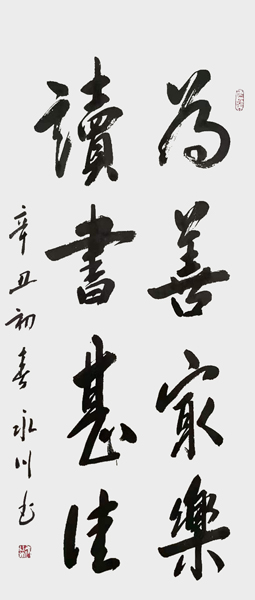 為善最樂
讀書甚佳
辛丑初春永川书